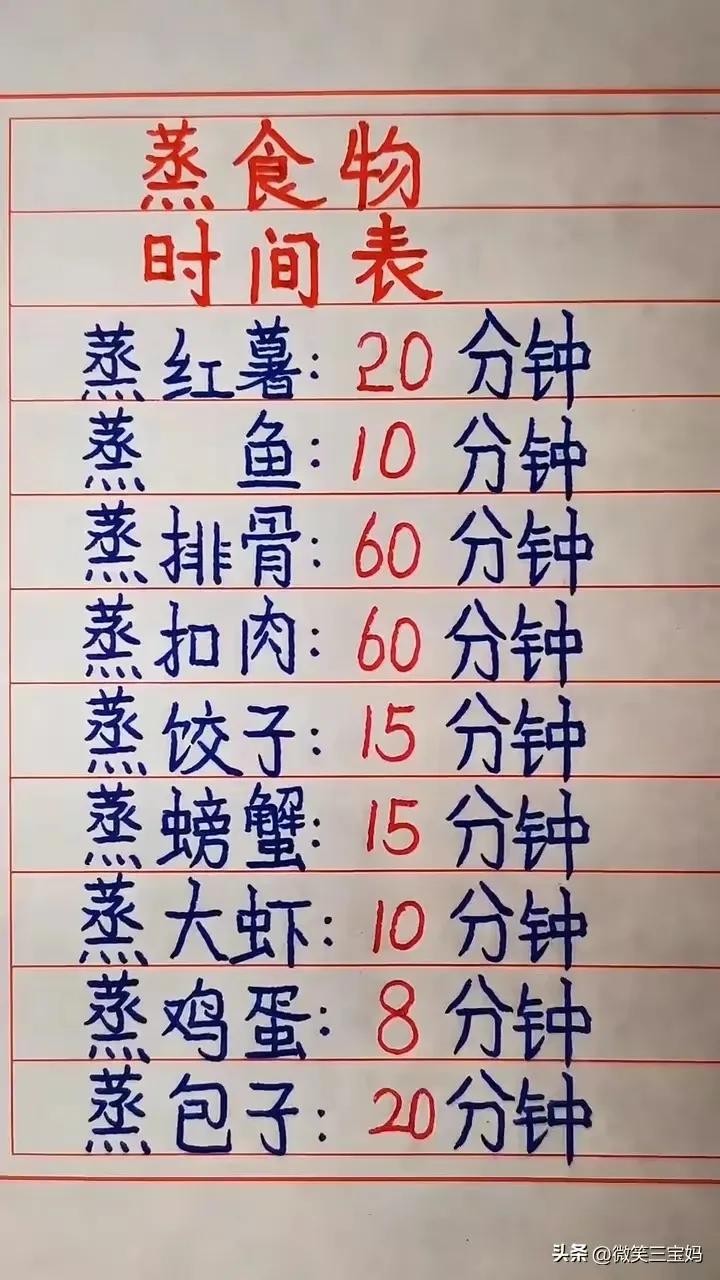 蒸食物
时间表
蒸红薯：20分钟
蒸 鱼：10分钟
蒸排骨：60分钟
蒸扣肉：60分钟
蒸饺子：15分钟
蒸螃蟹：15分钟
蒸大虾：10分钟
蒸鸡蛋：8分钟
蒸包子：20分钟
头条 @微笑三宝妈